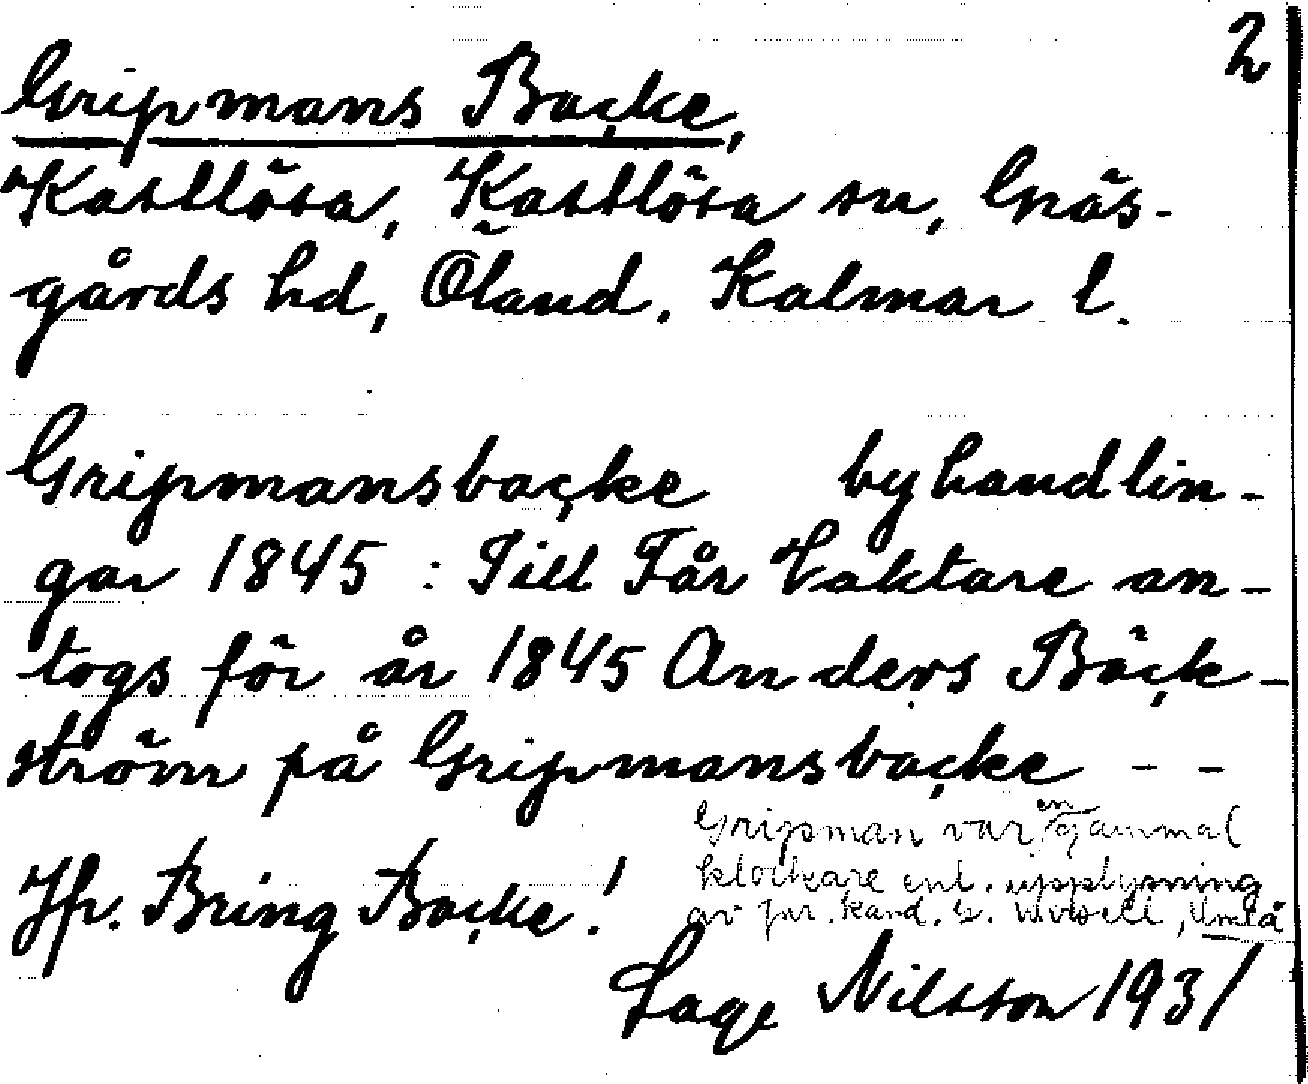 2
Gripmans Backe,
Kastlösa, Kastlösa sn, Gräs-
gårds hd, Öland. Kalmar l.
Gripmansbacke byhandlin-
gar 1845 : Till Får Vaktare an-
togs för år 1845 Anders Bäck-
ström på Gripmansbacke - -
Jfr. Bring Backe!
Gripman var en gammal
klockare enl. upplysning
av jur. kand. G. Umeå
Lage Nilsson 1931